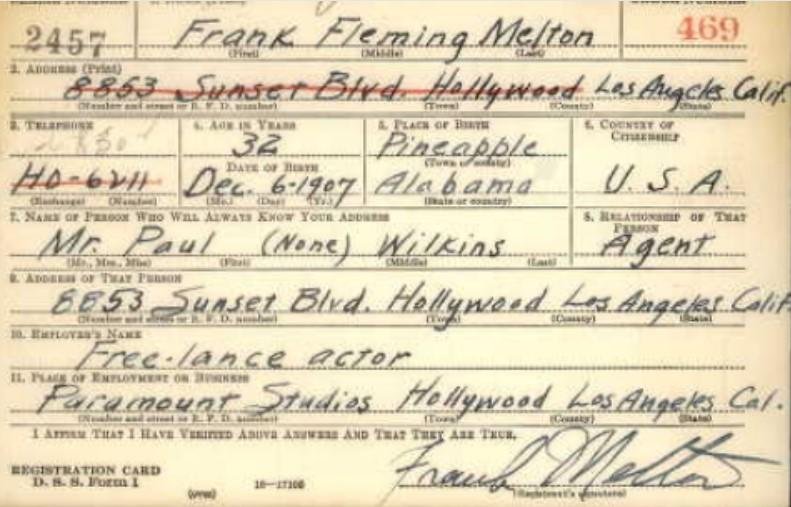 2457 Frank Fleming Melton 469
(First) (Middle) (Last)
2. ADDRESS (Print)
8853 Sunset Blvd. Hollywood Los Angeles Calif.
(Number and street or R. F. D. number) (Town) (County) (State)
3. TELEPHONE 4. AGE IN YEARS 5. PLACE OF BIRTH 6. COUNTRY OF CITIZENSHIP
32 Pineapple
DATE OF BIRTH (Town or county)
HO-6211 Dec. 6-1907 Alabama U. S. A.
(Exchange) (Number) (Mo.) (Day) (Yr.) (State or country)
7. NAME OF PERSON WHO WILL ALWAYS KNOW YOUR ADDRESS 8. RELATIONSHIP OF THAT PERSON
Mr. Paul (None) Wilkins Agent
(Mr., Mrs., Miss) (First) (Middle) (Last)
9. ADDRESS OF THAT PERSON
8853 Sunset Blvd. Hollywood Los Angeles Calif.
(Number and street or R. F. D. number) (Town) (County) (State)
10. EMPLOYER'S NAME
Free-lance actor
11. PLACE OF EMPLOYMENT OR BUSINESS
Paramount Studios Hollywood Los Angeles Cal.
(Number and street or R. F. D. number) (Town) (County) (State)
I AFFIRM THAT I HAVE VERIFIED ABOVE ANSWERS AND THAT THEY ARE TRUE.
Frank Melton
REGISTRATION CARD
D. S. S. Form 1 (over) 16-17105 (Registrant's signature)